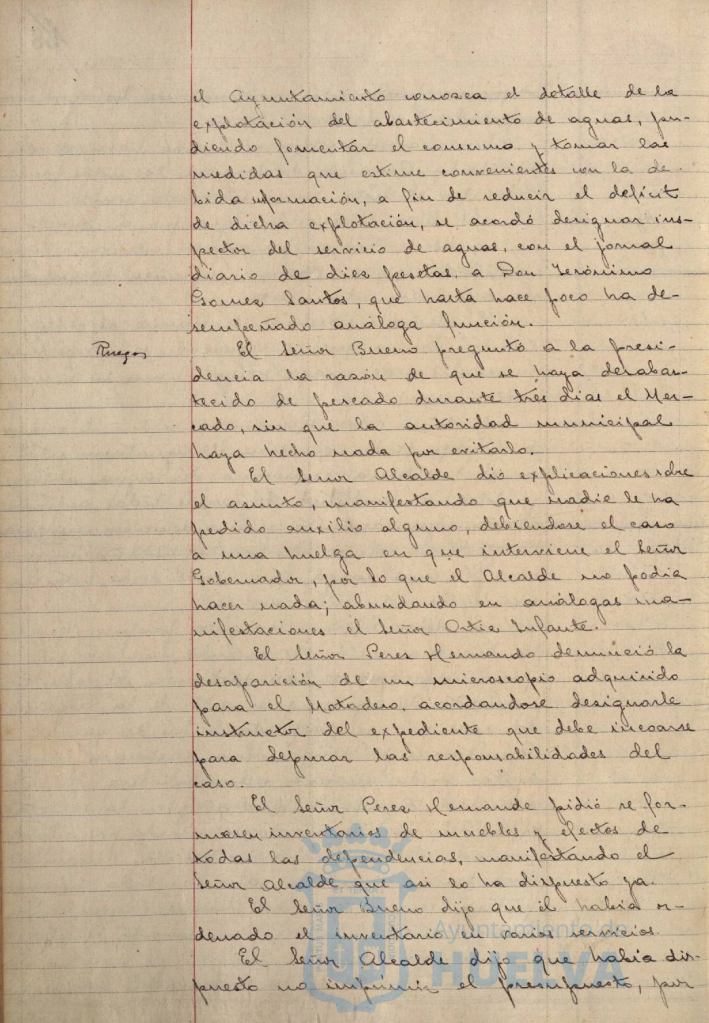 el Ayuntamiento conozca el detalle de la
explotación del abastecimiento de aguas, pu-
diendo fomentar el consumo y tomar las
medidas que estime convenientes con la de-
bida información, a fin de reducir el déficit
de dicha explotación, se acordó designar ins-
pector del servicio de aguas, con el jornal
diario de diez pesetas, a Don Jerónimo
Gomez Santos, que hasta hace poco ha de-
sempeñado análoga función.
Ruegos
El Señor Bueno preguntó a la presi-
dencia la razón de que se haya desabas-
tecido de pescado durante tres dias el Mer-
cado, sin que la autoridad municipal
haya hecho nada por evitarlo.
El Señor Alcalde dió explicaciones sobre
el asunto, manifestando que nadie le ha
pedido auxilio alguno, debiendose el caso
a una huelga en que interviene el Señor
Gobernador, por lo que el Alcalde no podia
hacer nada; abundando en análogas ma-
nifestaciones el Señor Ortiz Infante.
El Señor Perez Hernando denunció la
desaparición de un microscopio adquirido
para el Matadero, acordandose designarle
instructor del expediente que debe incoarse
para depurar las responsabilidades del
caso.
El Señor Perez Hernando pidió se for-
masen inventarios de muebles y efectos de
todas las dependencias, manifestando el
Señor Alcalde que asi lo ha dispuesto ya.
El Señor Bueno dijo que él habia or-
denado el inventario en varios servicios.
El Señor Alcalde dijo que habia dis-
puesto no imprimir el presupuesto, por
Ayuntamiento de
HUELVA